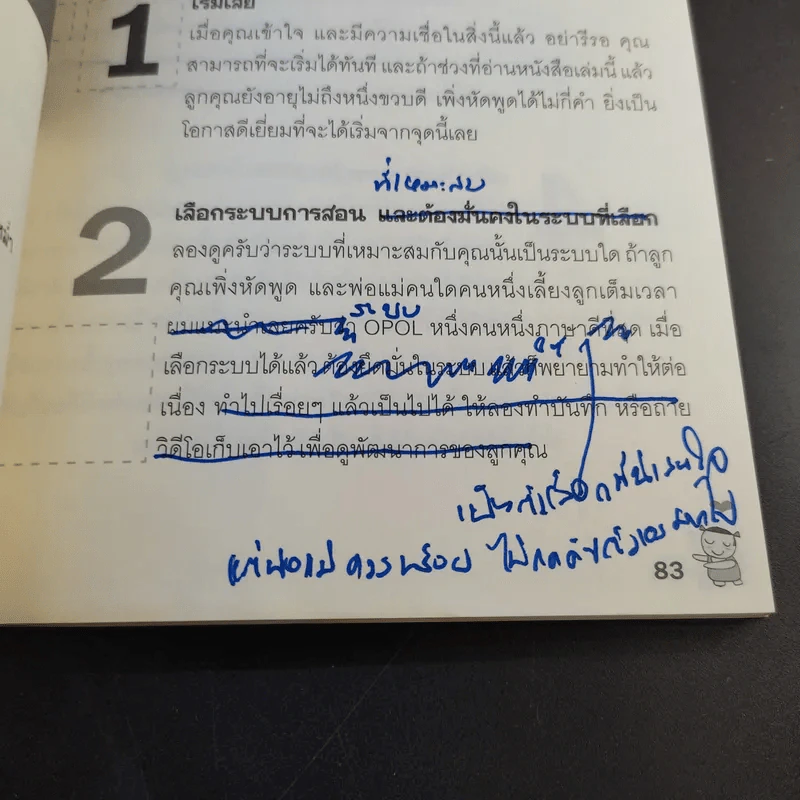 เริ่มเลย
1
เมื่อคุณเข้าใจ และมีความเชื่อในสิ่งนี้แล้ว อย่ารีรอ คุณ
สามารถที่จะเริ่มได้ทันที และถ้าช่วงที่อ่านหนังสือเล่มนี้ แล้ว
ลูกคุณยังอายุไม่ถึงหนึ่งขวบดี เพิ่งหัดพูดได้ไม่กี่คำ ยิ่งเป็น
โอกาสดีเยี่ยมที่จะได้เริ่มจากจุดนี้เลย
ที่เหมาะสม
2
เลือกระบบการสอน และต้องมั่นคงในระบบที่เลือก
ลองดูครับว่าระบบที่เหมาะสมกับคุณนั้นเป็นระบบใด ถ้าลูก
คุณเพิ่งหัดพูด และพ่อแม่คนใดคนหนึ่งเลี้ยงลูกเต็มเวลา
ระบบ
ผมแนะนำเลยครับ OPOL หนึ่งคนหนึ่งภาษาดีที่สุด เมื่อ
เลือกระบบได้แล้ว ต้องยึดมั่นในระบบ แล้วก็พยายามทำให้ต่อ
เนื่อง ทำไปเรื่อยๆ แล้วเป็นไปได้ ให้ลองทำบันทึก หรือถ่าย
วิดีโอเก็บเอาไว้ เพื่อดูพัฒนาการของลูกคุณ
เป็นตัวเลือกที่น่าสนใจ
แต่พ่อแม่ ควรพร้อม ไม่กดดันตัวเองมากไป
83